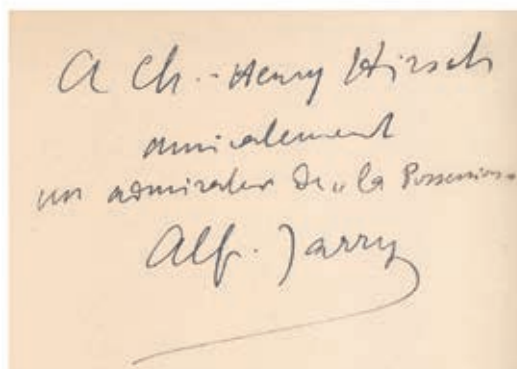 A Ch.-Henry Hirsch
amicalement
un admirateur de „la Possession
Alf. Jarry